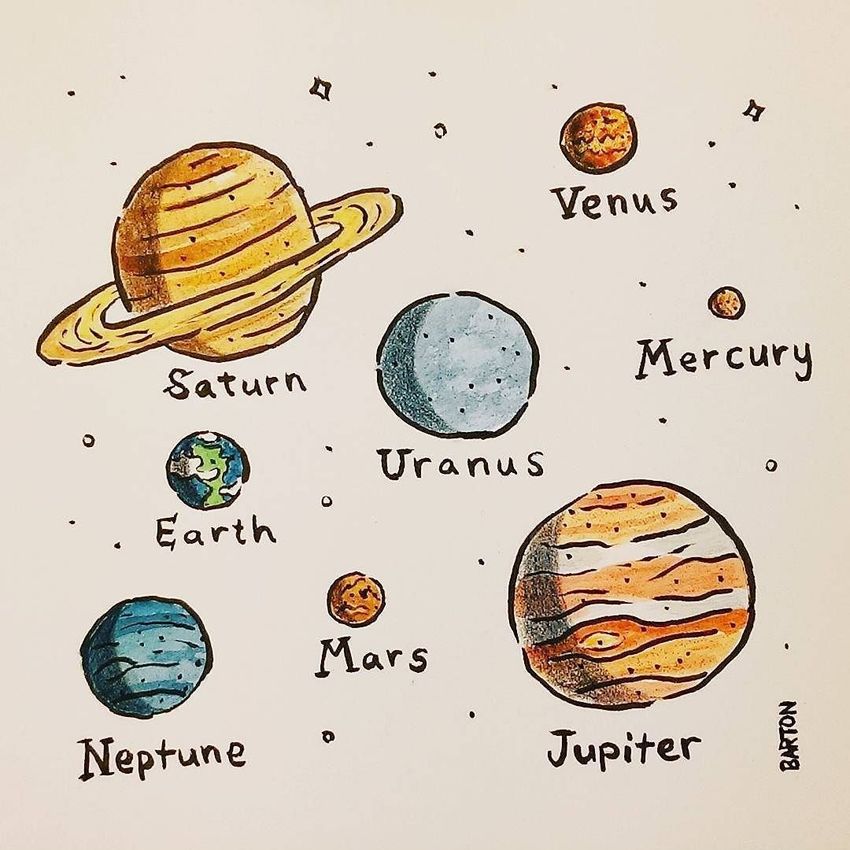 Venus
Saturn
Mercury
Uranus
Earth
Mars
Neptune
Jupiter
BARTON